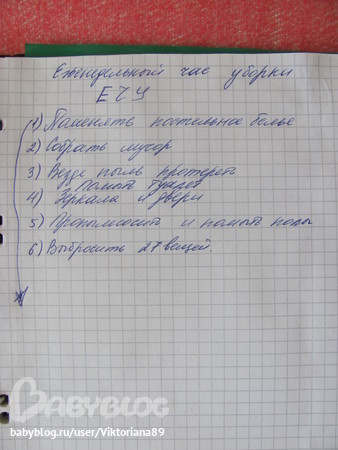 Еженедельный час уборки
ЕЧУ
1) Поменять постельное белье
2) Собрать мусор
3) Везде пыль протереть
помыть туалет
4) Зеркала и двери
5) Пропылесосить и помыть полы
6) Выбросить 27 вещей.
BABYBLOG
babyblog.ru/user/Viktoriana89